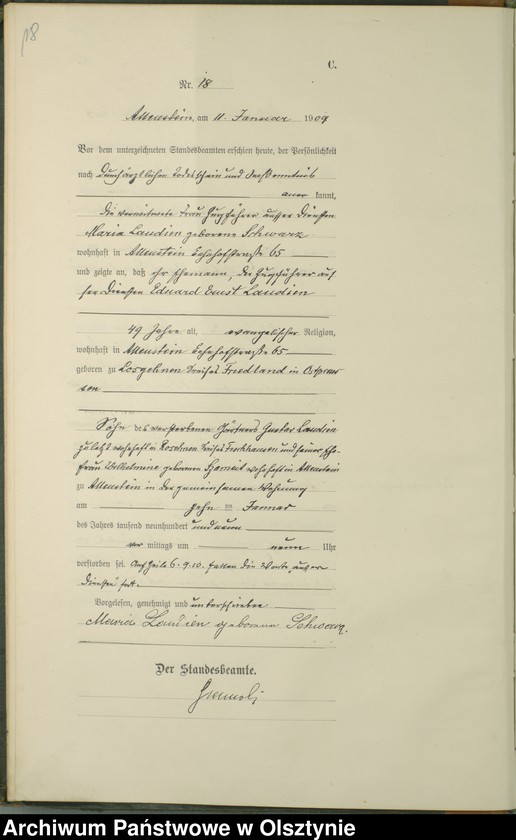 18
C.
Nr. 18
Allenstein, am 11. Januar 1909
Vor dem unterzeichneten Standesbeamten erschien heute, der Persönlichkeit
nach durch ärztlichen Todesschein und
kannt,
die verwitwete Frau Zugführer außer Diensten
Maria Laudien geborene Schwarz
wohnhaft in Allenstein Bahnhofstraße 65
und zeigte an, daß ihr Ehemann, der Zugführer au-
ßer Diensten Eduard Ernst Laudien
49 Jahre alt, evangelischer Religion,
wohnhaft in Allenstein Bahnhofstraße 65
geboren zu Losgehnen Kreises Friedland in Ostpreu-
ßen
Sohn des verstorbenen Gärtners Gustav Laudien
zuletzt wohnhaft in Kreises und seiner Ehe-
frau Wilhelmine geborenen wohnhaft in Allenstein
zu Allenstein in der gemeinsamen Wohnung
am zehn ten Januar
des Jahres tausend neunhundert und neun
vor mittags um neun Uhr
verstorben sei. Auf Zeile 6. 9. 10. fallen die Worte "außer
Diensten" fort.
Vorgelesen, genehmigt und unterschrieben
Maria Laudien geborene Schwarz.
Der Standesbeamte.
Archiwum Państwowe w Olsztynie